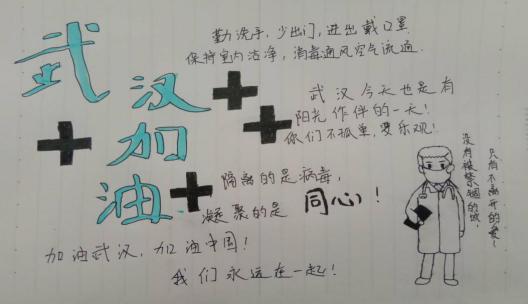 武汉加油
勤洗手，少出门，进出戴口罩
保持室内洁净，消毒通风空气流通.
武汉今天也是有
阳光作伴的一天！
你们不孤单，要乐观！
隔离的是病毒，
凝聚的是 同心！
加油武汉，加油中国！
我们永远在一起！
只有不离开的爱！
没有被禁锢的城，